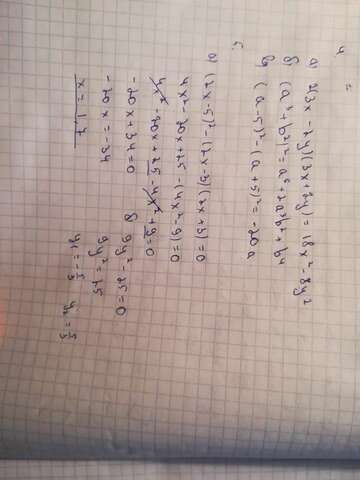 4
а) 2(3x - 2y)(3x + 2y) = 18x² - 8y²
б) (a³ + b²)² = a⁶ + 2a³b² + b⁴
в) (a - 5)² - (a + 5)² = -20a
5
а) (2x - 5)² - (2x - 3)(2x + 3) = 0
4x² - 20x + 25 - (4x² - 9) = 0
4x² - 20x + 25 - 4x² + 9 = 0
-20x + 34 = 0
-20x = -34
x = 1,7
б 9y² - 25 = 0
9y² = 25
y₁ = -5/3 y₂ = 5/3